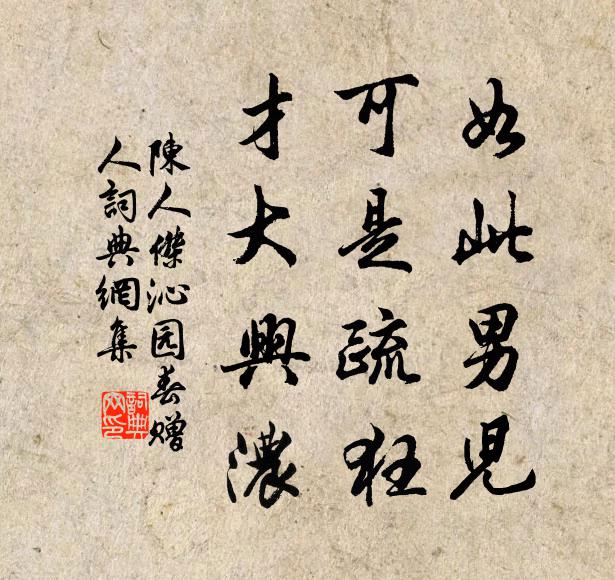 如此男兒
可是疏狂
才大興濃
陳人傑沁园春赠
人詞典網集
詞典
网印